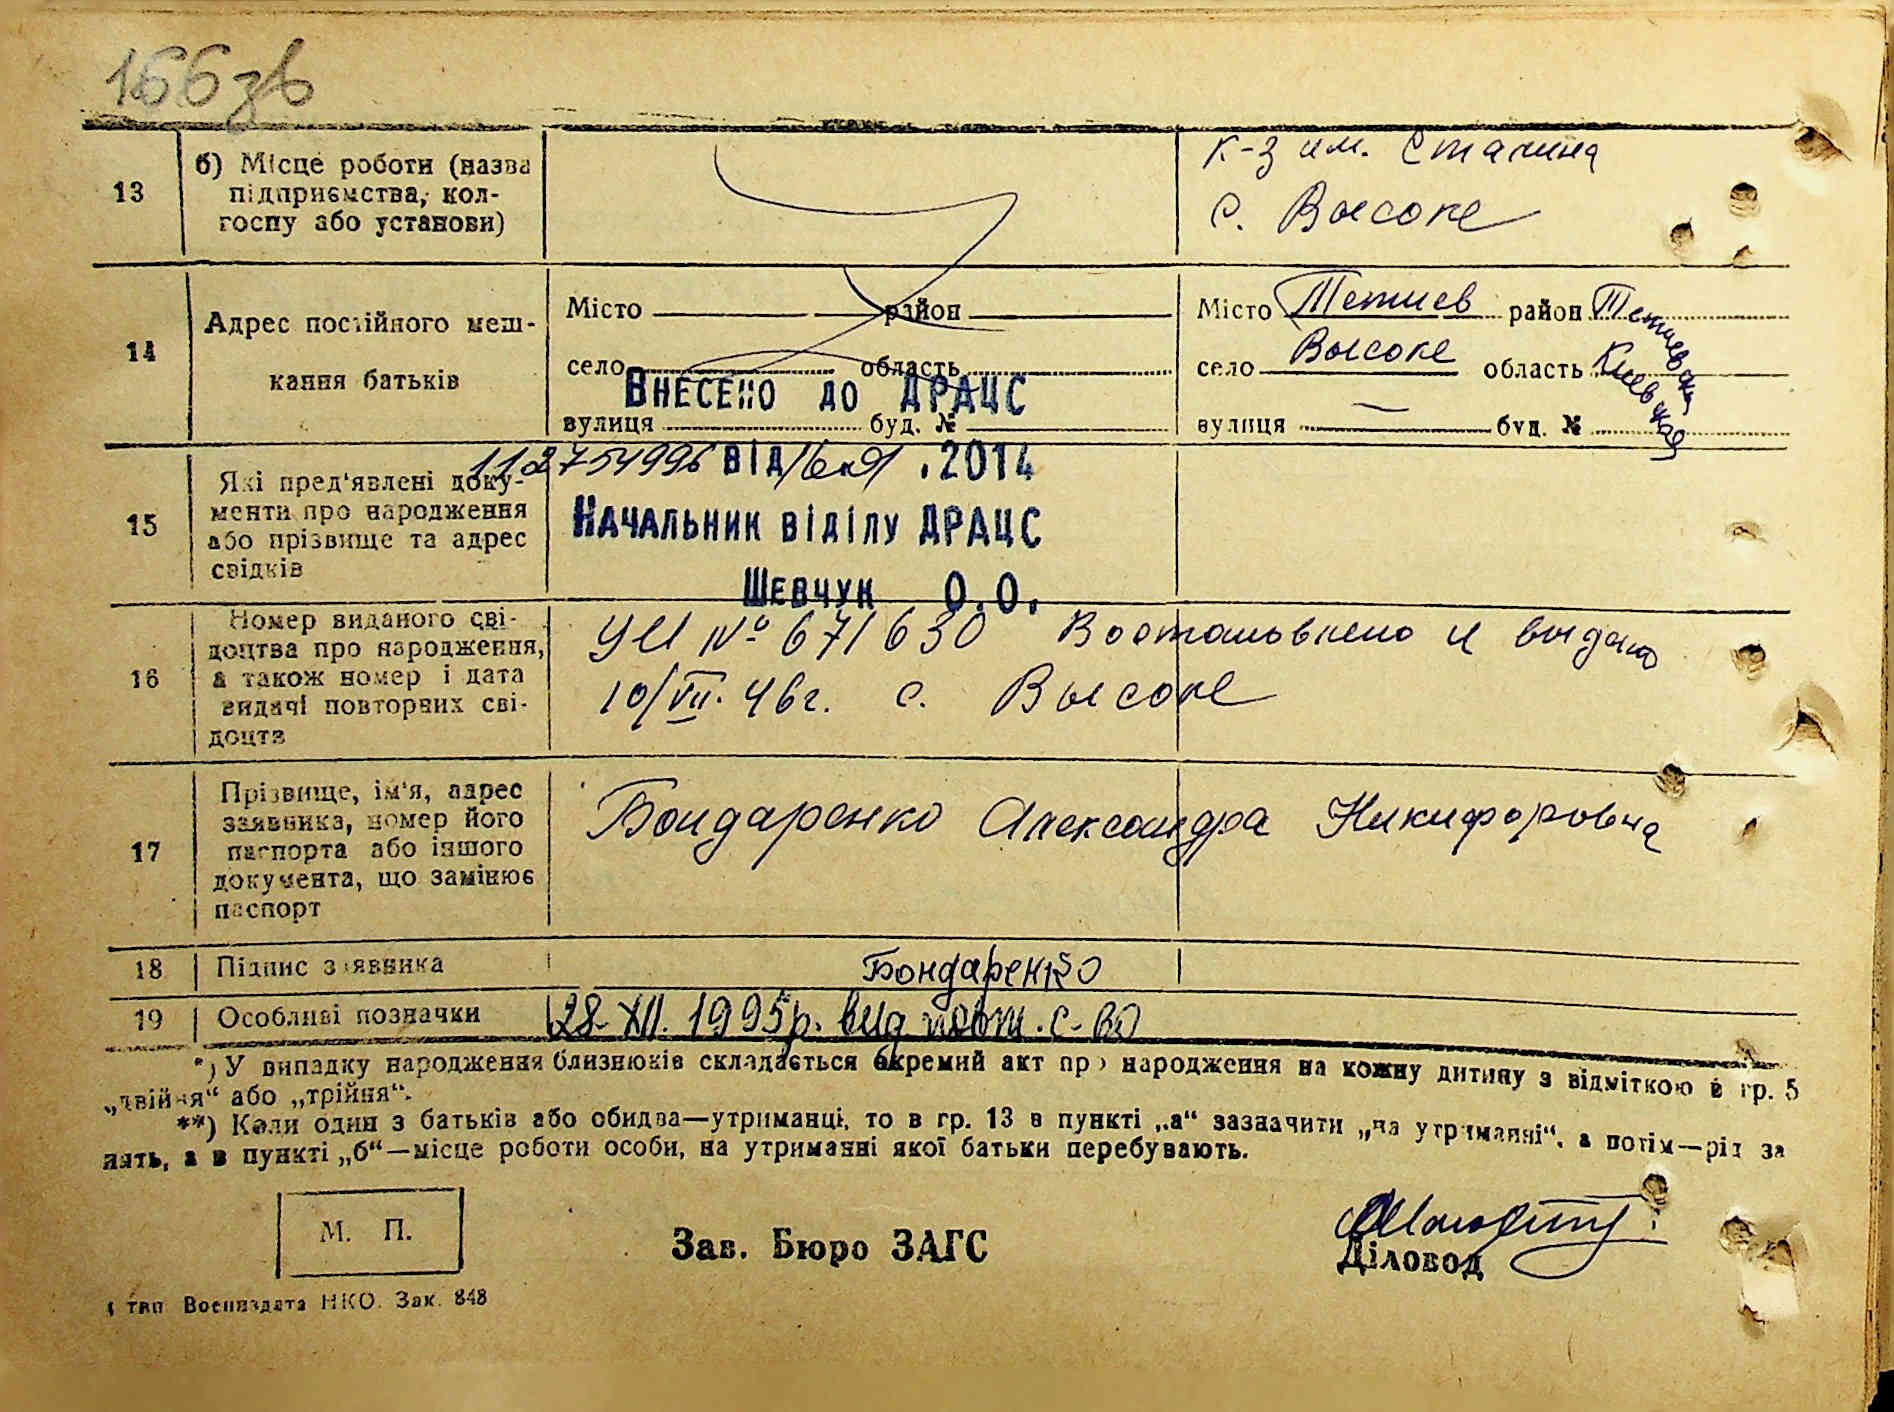 166 зв
13
б) Місце роботи (назва
підприємства, кол-
госпу або установи)
к-з им. Сталина
с. Высоке
14
Адрес постійного меш-
кання батьків
Місто район
село область
вулиця буд. №
Місто Тетиев район Тетиевский
село Высоке область Киевская
вулиця — буд. №
Внесено до ДРАЦС
від .2014
Начальник відділу ДРАЦС
Шевчук О.О.
15
Які пред'явлені доку-
менти про народження
або прізвище та адрес
свідків
16
Номер виданого сві-
доцтва про народження,
а також номер і дата
видачі повторних сві-
доцтв
УЫ № 671630 Востановлено и выдано
10/VII. 46г. с. Высоке
17
Прізвище, ім'я, адрес
заявника, номер його
паспорта або іншого
документа, що замінює
паспорт
Бондаренко Александра Никифоровна
18
Підпис заявника
Бондаренко
19
Особливі позначки
28-XII. 1995р. вид повт. с-во
*) У випадку народження близнюків складається окремий акт про народження на кожну дитину з відміткою в гр. 5
„двійня“ або „трійня“.
**) Коли один з батьків або обидва—утриманці, то в гр. 13 в пункті „а“ зазначити „на утриманні“, а потім—рід за
нять, а в пункті „б“—місце роботи особи, на утриманні якої батьки перебувають.
М. П.
Зав. Бюро ЗАГС
Діловод
тип Воениздата НКО. Зак. 848